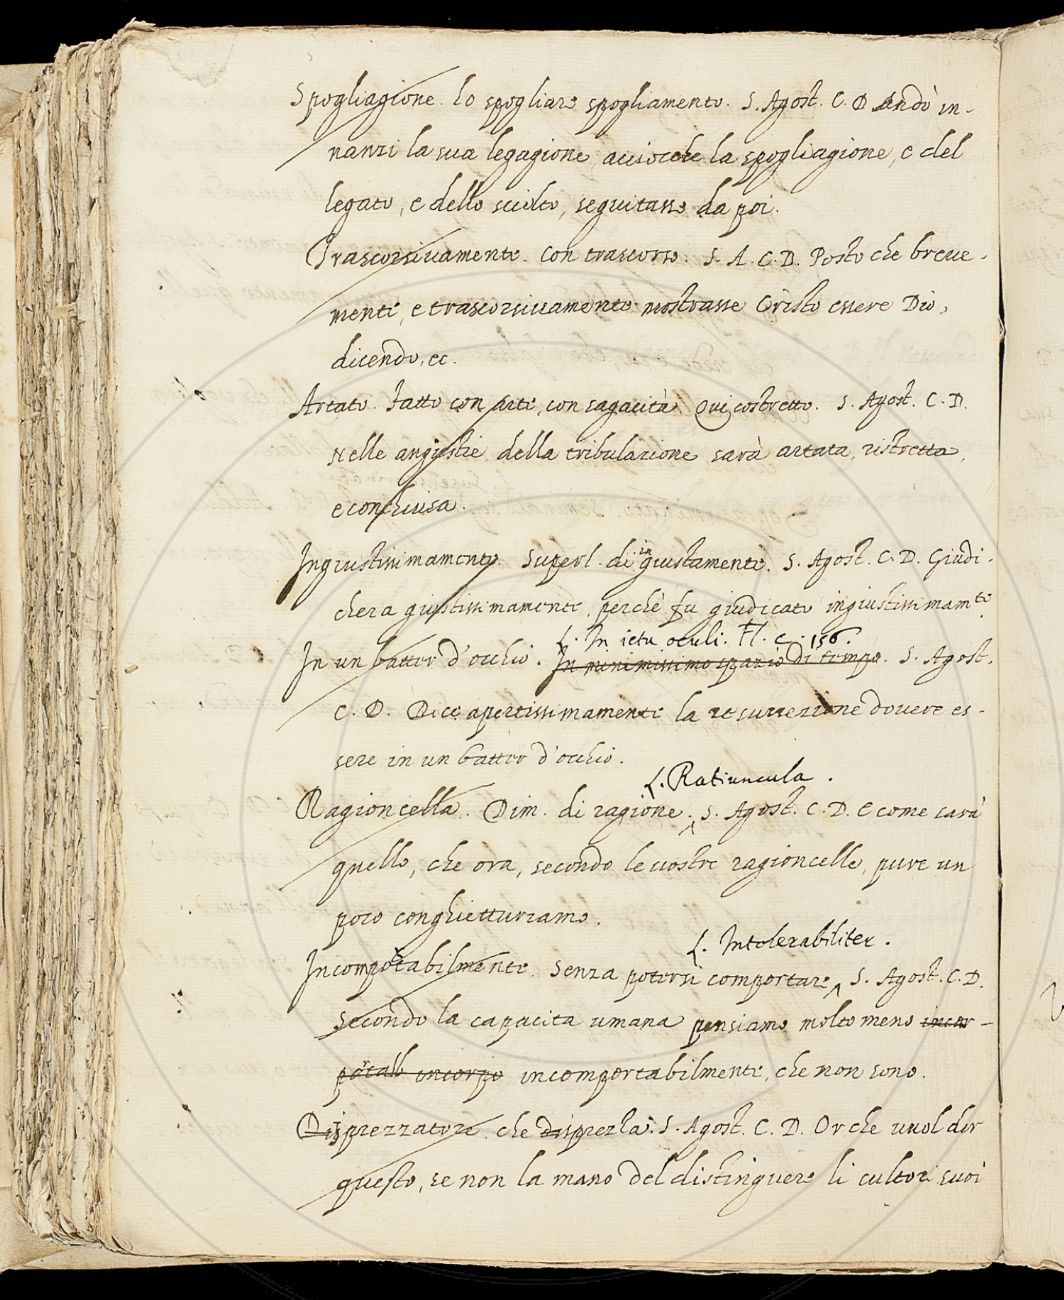 Spogliagione. lo spogliare spogliamento. S. Agost. C. D. Andò in-
nanzi la sua legagione, acciocchè la spogliagione, e del
legato, e dello sciolto, seguitasse da poi.
Trascorsivamente. Con trascorso. S. A. C. D. Posto che breve-
mente, e trascorsivamente mostrasse Cristo essere Dio,
dicendo, ec.
Artato. Fatto con arte, con sagacità Qui costretto. S. Agost. C. D.
Nelle angustie della tribulazione sarà artata, ristretta,
e conchiusa.
Ingiustissimamente. Superl. di ingiustamente. S. Agost. C. D. Giudi-
cherà giustissimamente, perchè fu giudicato ingiustissimamte.
L. In ictu oculi. Fl. c. 156.
In un batter d'occhio. In minimissimo spazio di tempo. S. Agost.
C. D. Dice apertissimamente la resurrezione dovere es-
sere in un batter d'occhio.
L. Ratiuncula.
Ragioncella. Dim. di ragione. S. Agost. C. D. E come sarà
quello, che ora, secondo le vostre ragioncelle, pure un
poco conghietturiamo.
L. Intolerabiliter.
Incomportabilmente. Senza potersi comportare. S. Agost. C. D.
Secondo la capacita umana pensiamo molto meno incor-
incomportabilmente, che non sono.
Disprezzatore. che disprezza. S. Agost. C. D. Or che vuol dir
questo, se non la mano del distinguere li cultori suoi